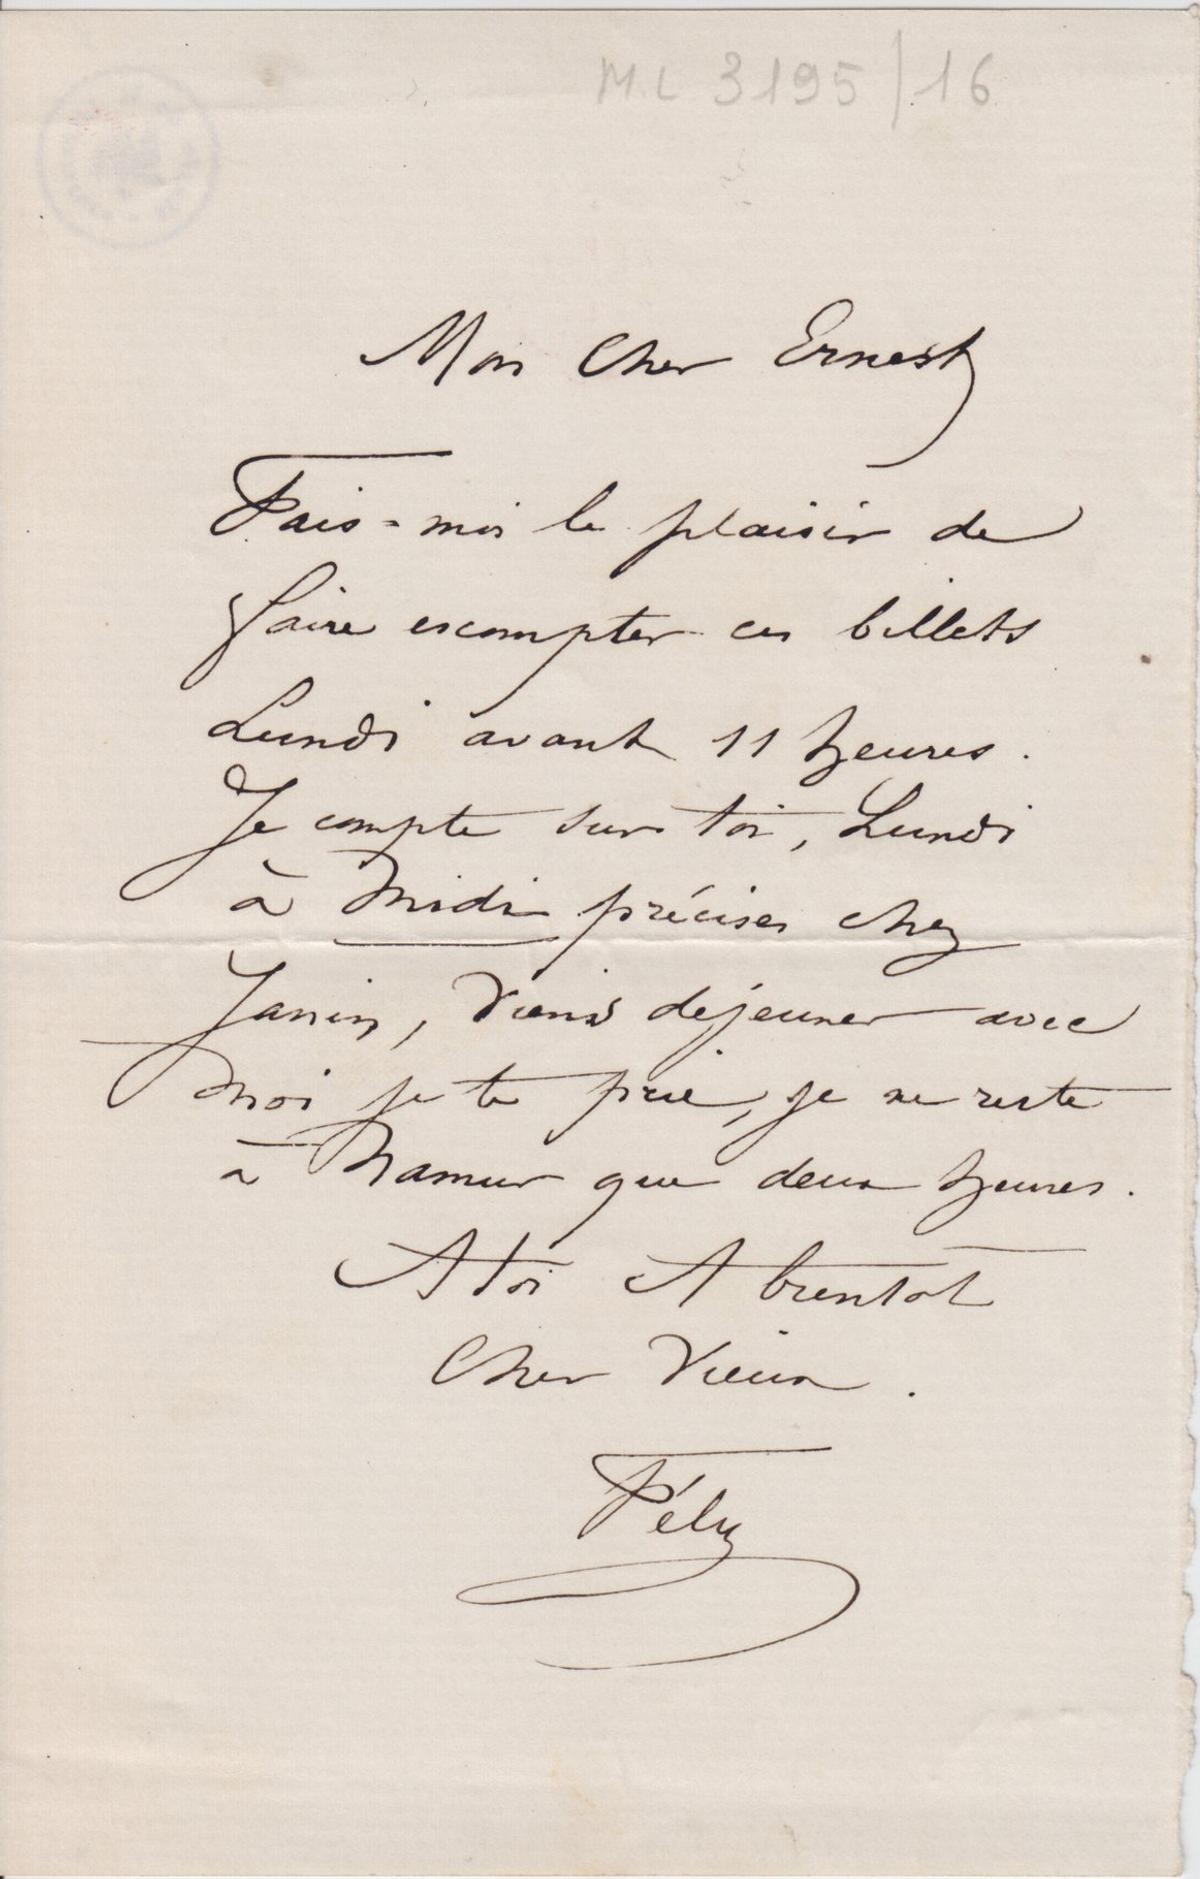 ML 3195/16
Mon Cher Ernest
Fais-moi le plaisir de
faire escompter ces billets
Lundi avant 11 heures.
Je compte sur toi, Lundi
à Midi précises chez
Janin, viens dejeuner avec
moi je te prie, je ne reste
à Namur que deux heures.
A toi A bientot
Cher Vieux.
Fély